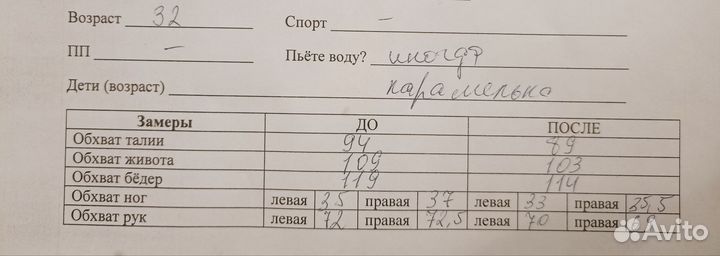 Возраст 32 Спорт –
ПП – Пьёте воду? иногда
Дети (возраст) карамелька
Замеры ДО ПОСЛЕ
Обхват талии 94 89
Обхват живота 109 103
Обхват бёдер 119 114
Обхват ног левая 35 правая 37 левая 33 правая 35,5
Обхват рук левая 72 правая 72,5 левая 70 правая
Avito